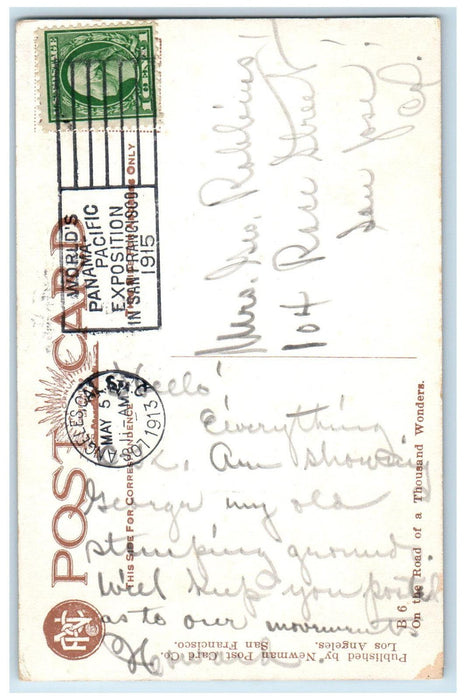 POST CARD
THIS SIDE FOR CORRESPONDENCE
ONLY
POSTAGE
1 CENT 1
WORLD'S
PANAMA
PACIFIC
EXPOSITION
IN SAN FRANCISCO
1915
LOS ANGELES, CAL.
MAY 5
11-AM
1913
Mrs. Geo. Robbins
104 Race Street
San Jose
Cal.
"Hello"
Everything
O.K. Am showing
George my old
stamping ground
Will keep you posted
as to our movement.
Howard
B 6
On the Road of a Thousand Wonders.
Published by Newman Post Card Co.
Los Angeles. San Francisco.